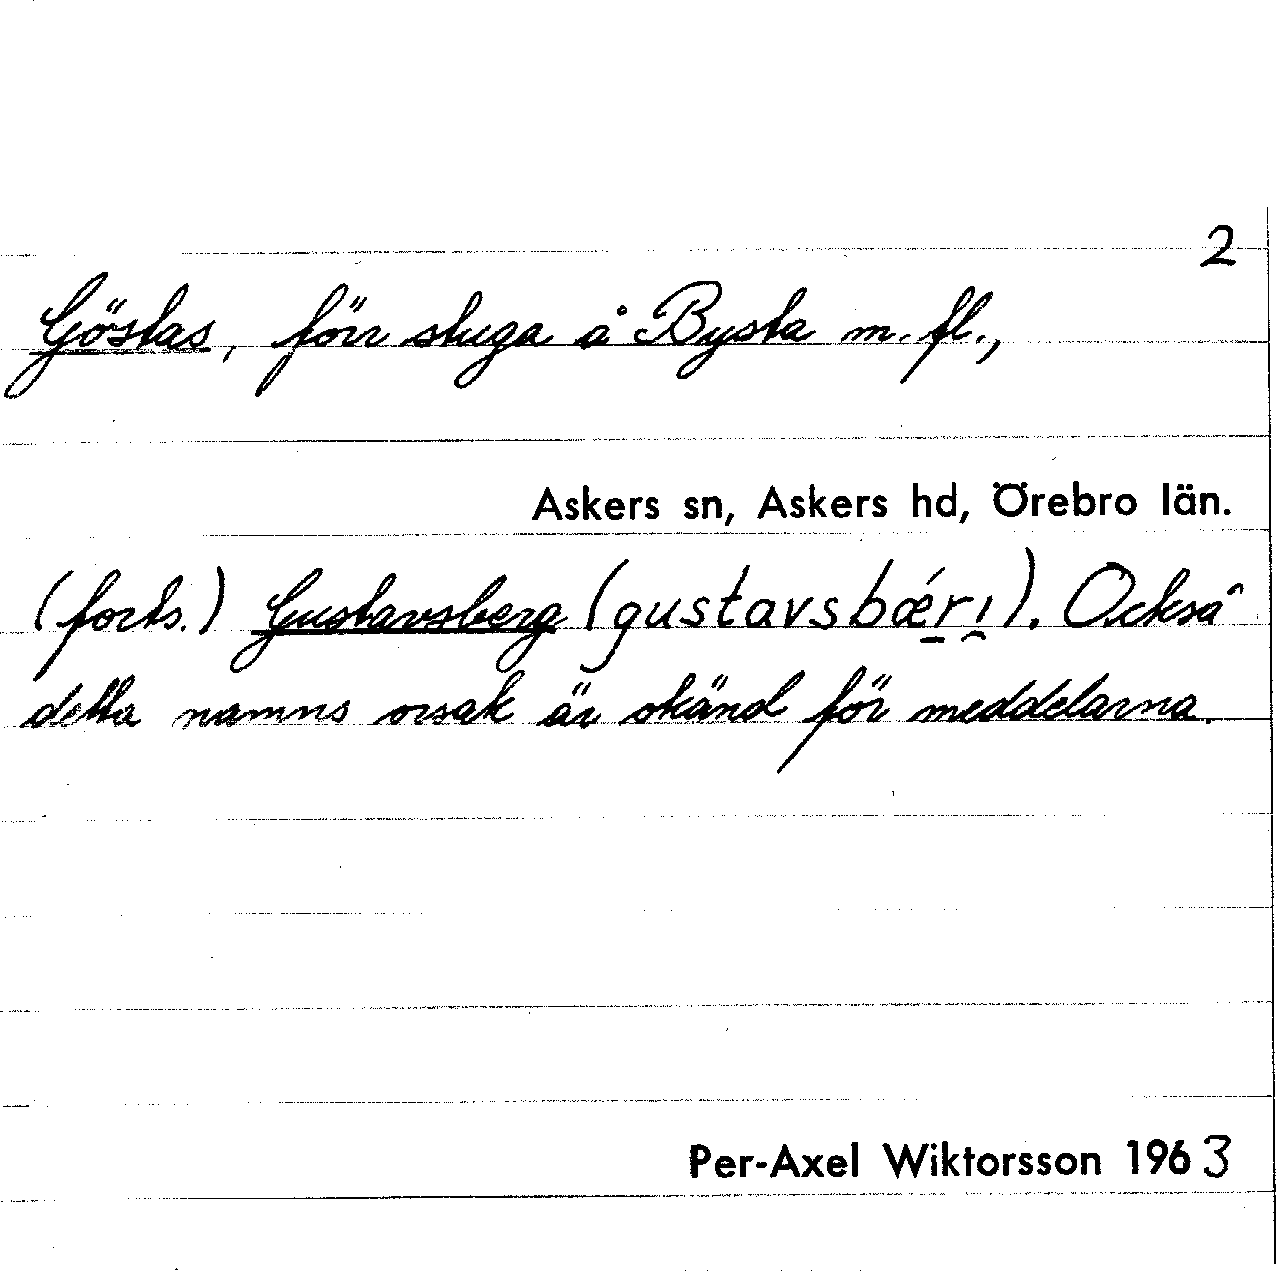 2
Göstas, förr stuga å Bysta m. fl.,
Askers sn, Askers hd, Örebro län.
(forts.) Gustavsberg (gustavsbǽ̠rı̯). Också
detta namns orsak är okänd för meddelarna.
Per-Axel Wiktorsson 1963